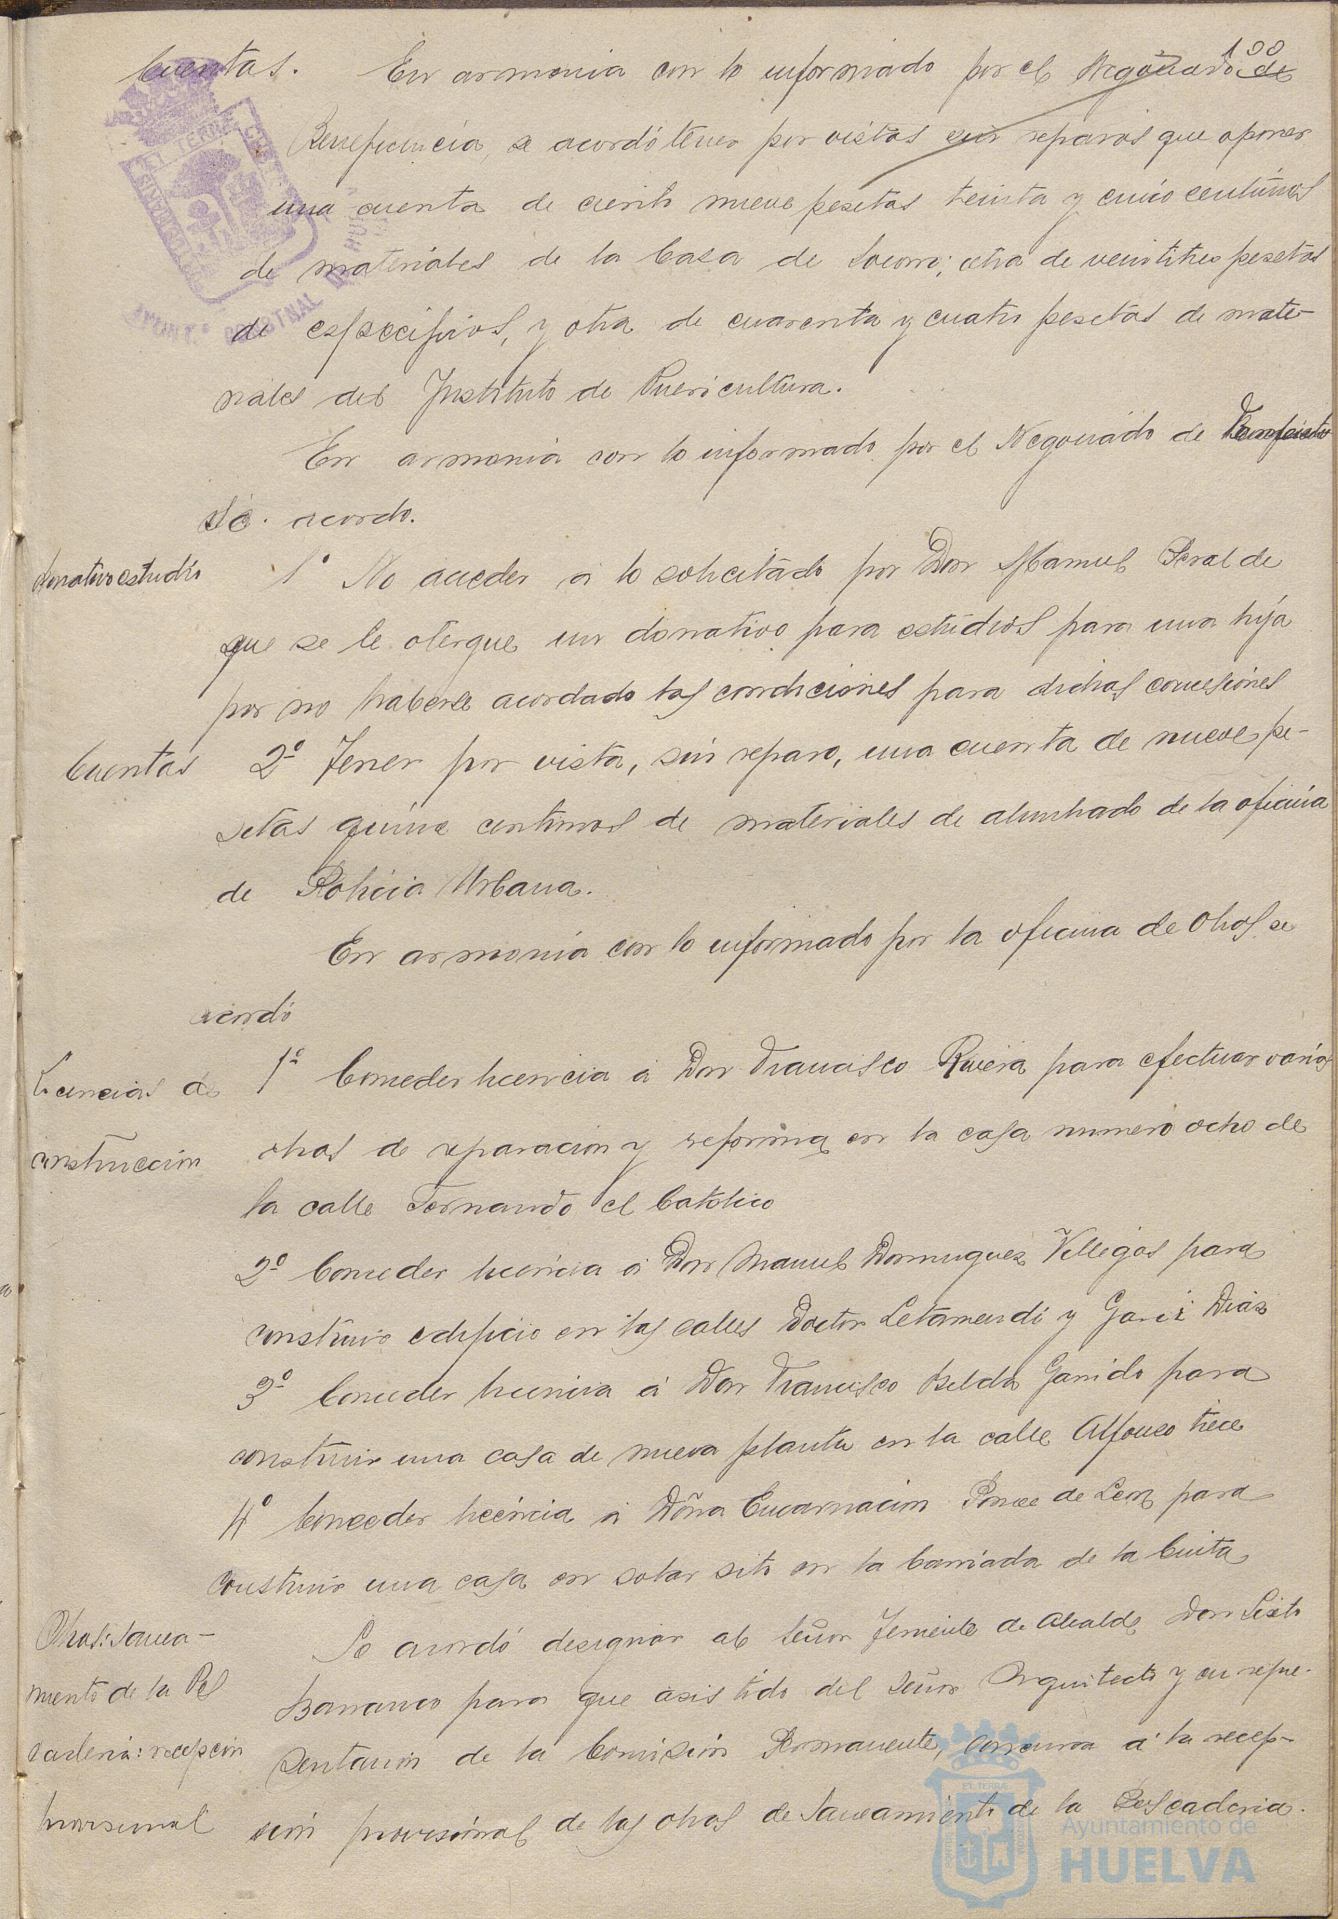 100
Cuentas. En armonia con lo informado por el Negociado de
Beneficencia, se acordó tener por vistas sin reparos que oponer
una cuenta de ciento nueve pesetas treinta y cinco centimos
de materiales de la Casa de Socorro; otra de veintitres pesetas
de especificos, y otra de cuarenta y cuatro pesetas de mate-
riales del Instituto de Puericultura.
En armonia con lo informado por el Negociado de
se acordo.
donativo estudio 1º No acceder a lo solicitado por Don Manuel Peral de
que se le otorgue un donativo para estudios para una hija
por no haberse acordado las condiciones para dichas concesiones
Cuentas 2º Tener por vista, sin reparo, una cuenta de nueve pe-
setas quince centimos de materiales de alumbrado de la oficina
de Policia Urbana.
En armonia con lo informado por la oficina de Obras se
acordó
Licencias de 1º Conceder licencia a Don Francisco Rivera para efectuar varias
construccion obras de reparacion y reforma en la casa numero ocho de
la calle Fernando el Catolico
2º Conceder licencia a Don Manuel Dominguez Villegas para
construir edificio en las calles Doctor Letamendi y Garci Diaz
3º Conceder licencia a Don Francisco Belda Garrido para
construir una casa de nueva planta en la calle Alfonso trece
4º Conceder licencia a Doña Encarnacion Ponce de Leon para
construir una casa en solar sito en la barriada de la Cinta
Obras: Sanea- Se acordó designar al Señor Teniente de Alcalde Don Sixto
miento de la Pes Barranco para que asistido del Señor Arquitecto y en repre-
caderia: recepcion sentacion de la Comision Permanente, concurra a la recep-
provisional cion provisional de las obras de Saneamiento de la Pescaderia.
Ayuntamiento de
HUELVA